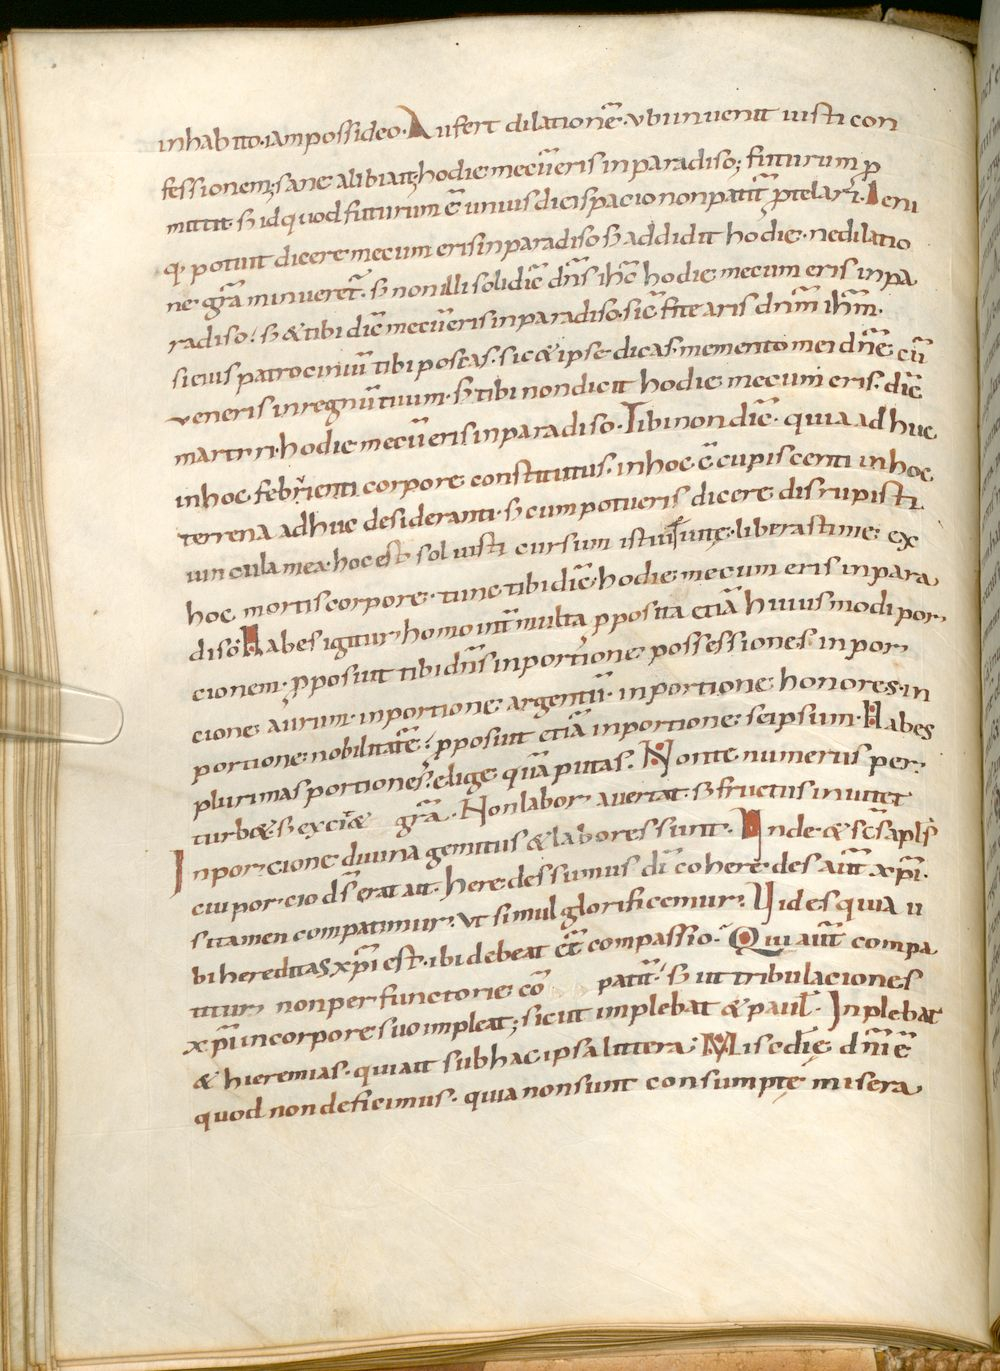 inhabito·iam possideo·Aufert dilationē·ubi inuenit iusti con
fessionem; sane alibi ait; hodie mecū eris in paradiso; futurum p̄
mittit·s; id quod futurum ē unius diei spacio non patit̄ p̄telari·Leni
q· potuit dicere mecum eris in paradiso s; addidit hodie·ne dilatio
ne gr̄a minueret̄·s; non illi soli dic̄ dn̄s ih̄c hodie mecum eris in pa
radiso; s; & tibi dic̄ mecū eris in paradiso·sic̄ fite aris dn̄m ih̄m·
si eius patrociniū tibi poscas·sic & ipse dicas·memento mei dn̄e cū
veneris in regnū tuum·s; tibi non dicit hodie mecum eris·dic̄
martyri·hodie mecū eris in paradiso·Tibi non dic̄·quia adhuc
in hoc febrienti corpore constitutus·in hoc c̄cupiscenti in hoc
terrena adhuc desideranti·s; cum potueris dicere disrupisti
uincula mea·hoc est soluisti cursum istius iunc̨·liberasti me; ex
hoc mortis corpore·tunc tibi dic̄·hodie mecum eris in para
diso·Habes igitur homo int̄ multa p̄posita etiā huiusmodi por
cionem·p̄posuit tibi dn̄s in portione possessiones·in por
cione aurum·in portione argentū·in portione honores·in
portione nobilitatē; p̄posuit etiā in portione seipsum·Habes
plurimas portiones; elige quā putas·Non te numerus per
turb&·s; exci& gr̄a·Non labor auertat·s; fructus inuitet
In porcione diuina gemitus & labores sunt·Inde & sc̄s apl̄s
cui porcio ds̄ erat ait·heredes sumus di· coheredes aūt xp̄i·
si tamen compatimur·ut simul glorificemur; Id es quia u
bi hereditas xp̄i est·ibi debeat eē compassio·Qui aūt compa
titur non perfunctorie cō patit̄·s; ut tribulaciones
xp̄i in corpore suo impleat; sicut implebat & paul̄·Inplebat
& hieremias·qui ait sub hac ipsa littera; Misc̄die dn̄i ē
quod non deficimus·quia non sunt consumptę misera